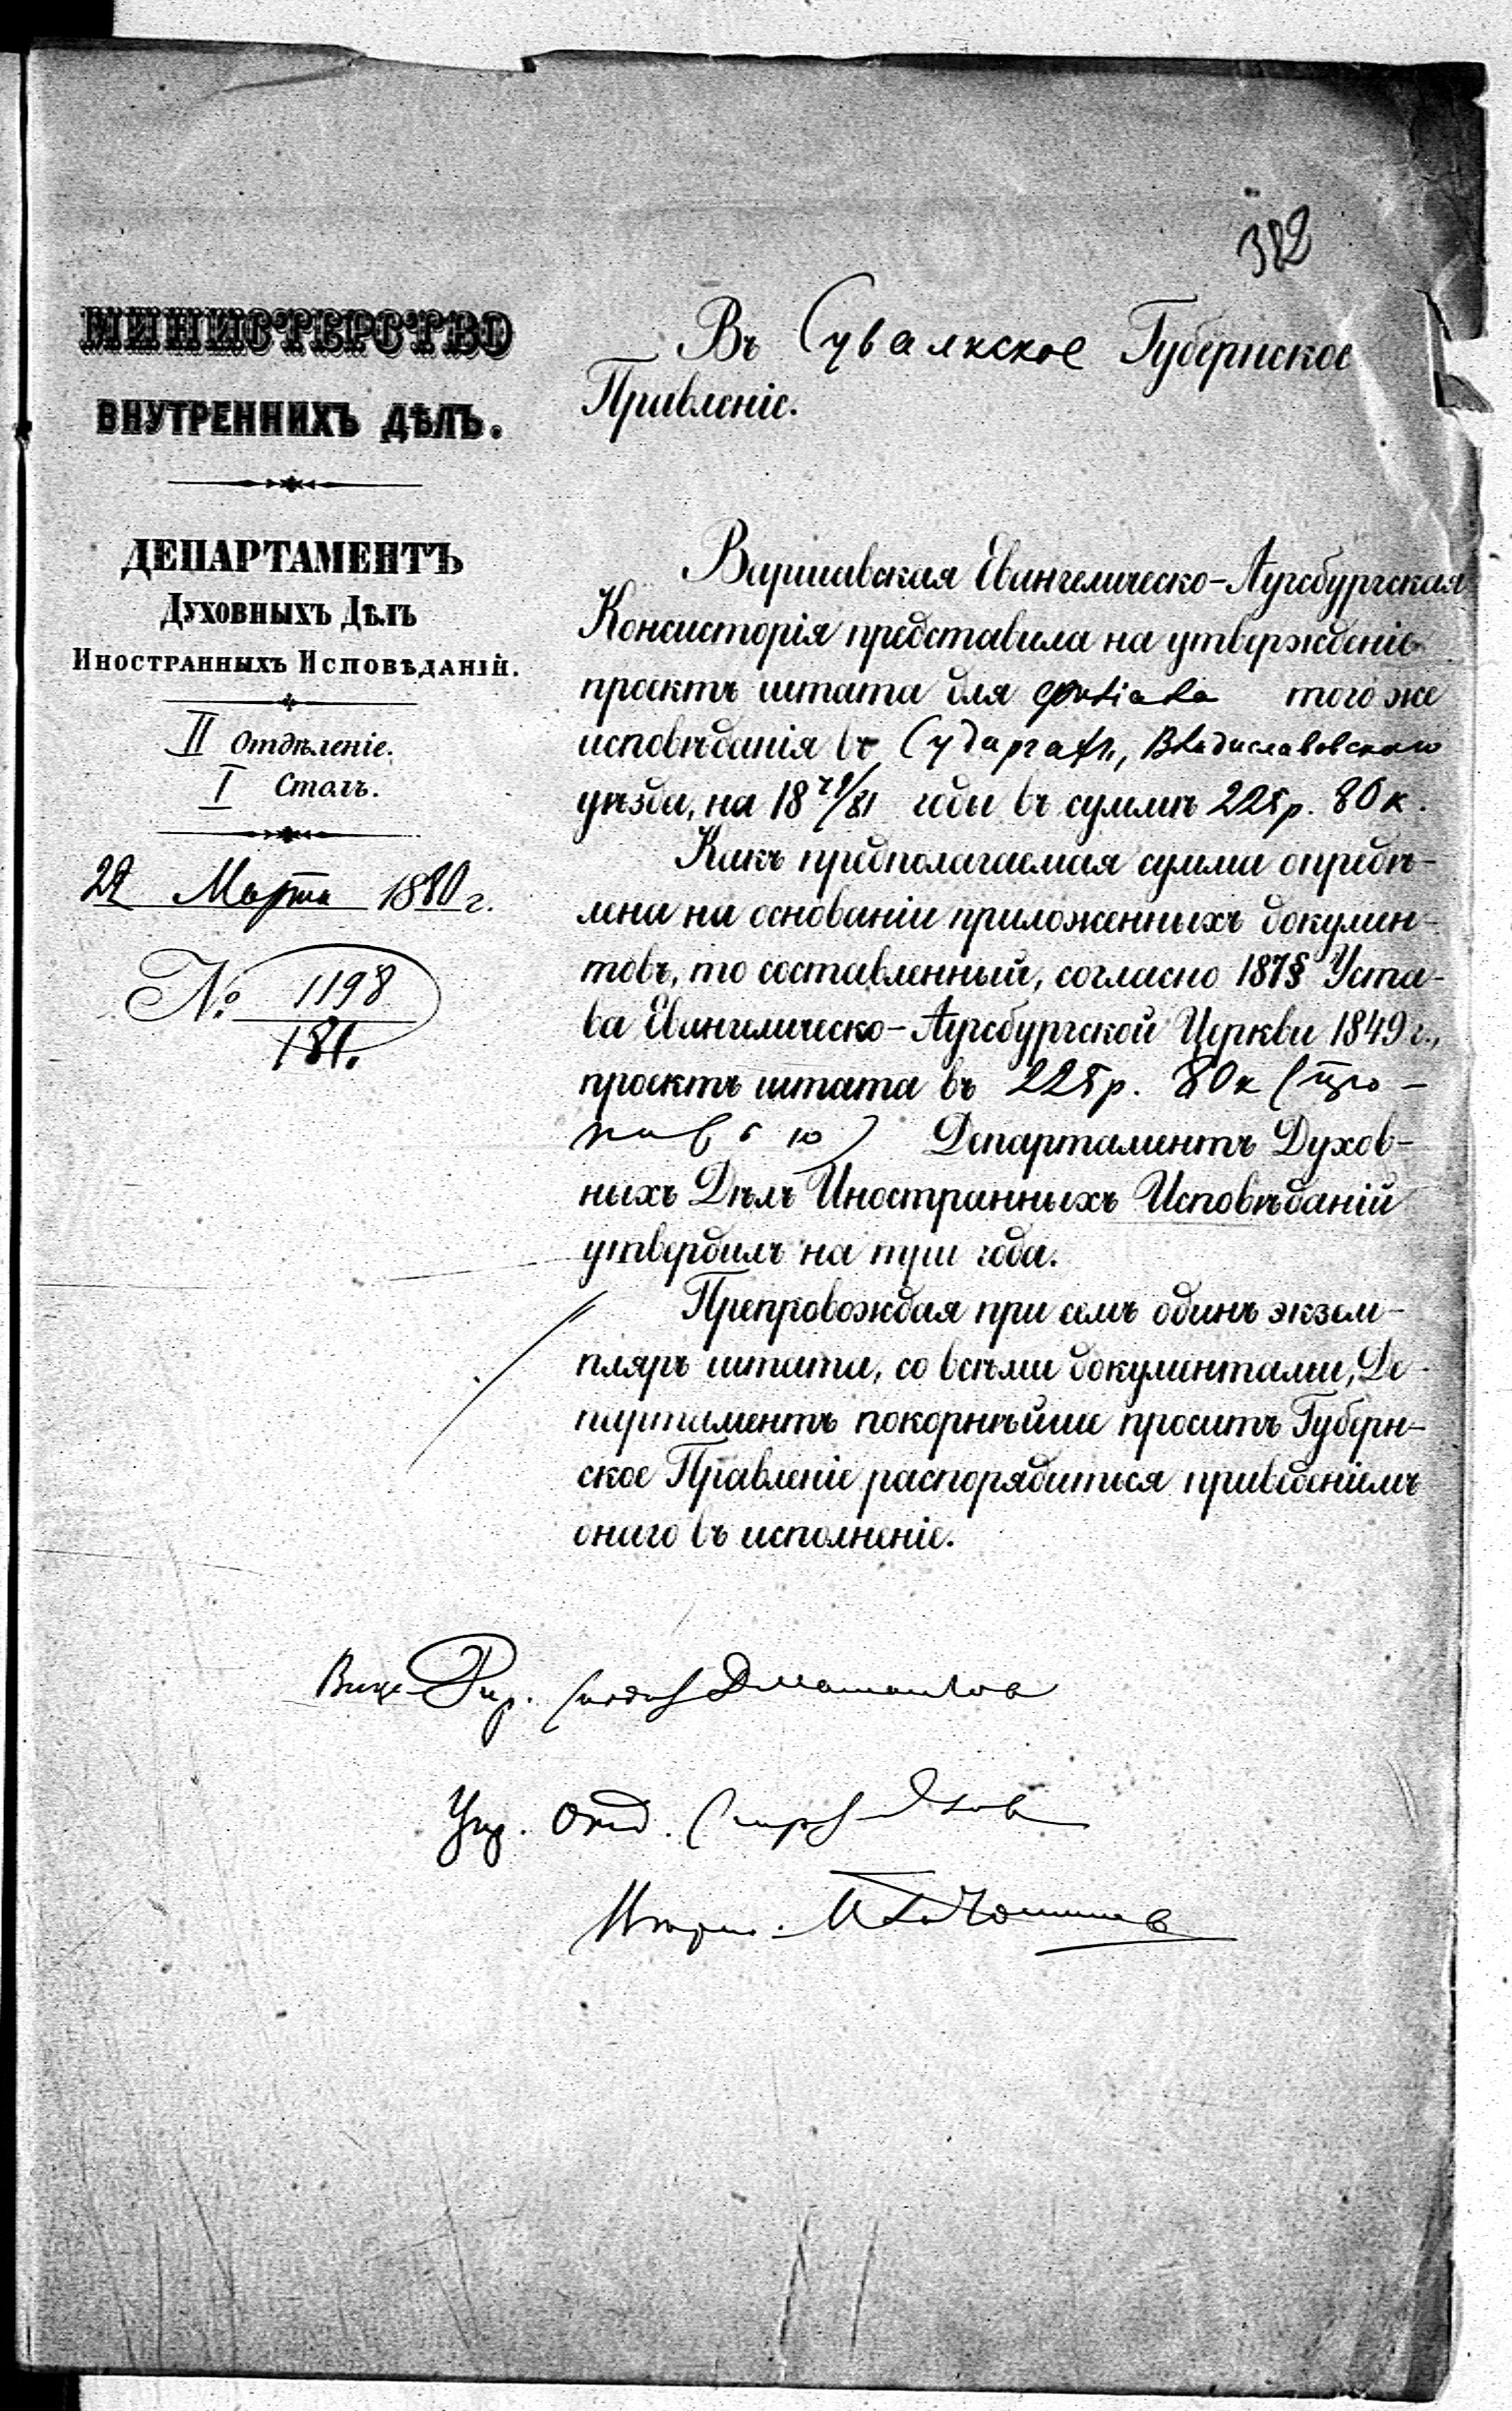 382
МИНИСТЕРСТВО
ВНУТРЕННИХЪ ДѢЛЪ.
ДЕПАРТАМЕНТЪ
ДУХОВНЫХЪ ДѢЛЪ
ИНОСТРАННЫХЪ ИСПОВѢДАНІЙ.
II Отдѣленіе.
I Столъ.
Марта 1880 г.
№ 1198
181.
Въ Сувалкское Губернское
Правленіе.
Варшавская Евангелическо-Аугсбургская
Консисторія представила на утвержденіе
проектъ штата для филіала того же
исповѣданія въ Сударгахъ, Владиславовскаго
уѣзда, на 18 79/81 годы въ суммѣ 225 р. 80 к.
Какъ предполагаемая сумма опредѣ-
лена на основаніи приложенныхъ докумен-
товъ, то составленный, согласно 187 § Уста-
ва Евангелическо-Аугсбургской Церкви 1849 г.,
проектъ штата въ 225 р. 80 к
Департаментъ Духов-
ныхъ Дѣлъ Иностранныхъ Исповѣданій
утвердилъ на три года.
Препровождая при семъ одинъ экзем-
пляръ штата, со всѣми документами, Де-
партаментъ покорнѣйше проситъ Губерн-
ское Правленіе распорядиться приведеніемъ
онаго въ исполненіе.
Вице-Дир.
Упр. Отд.